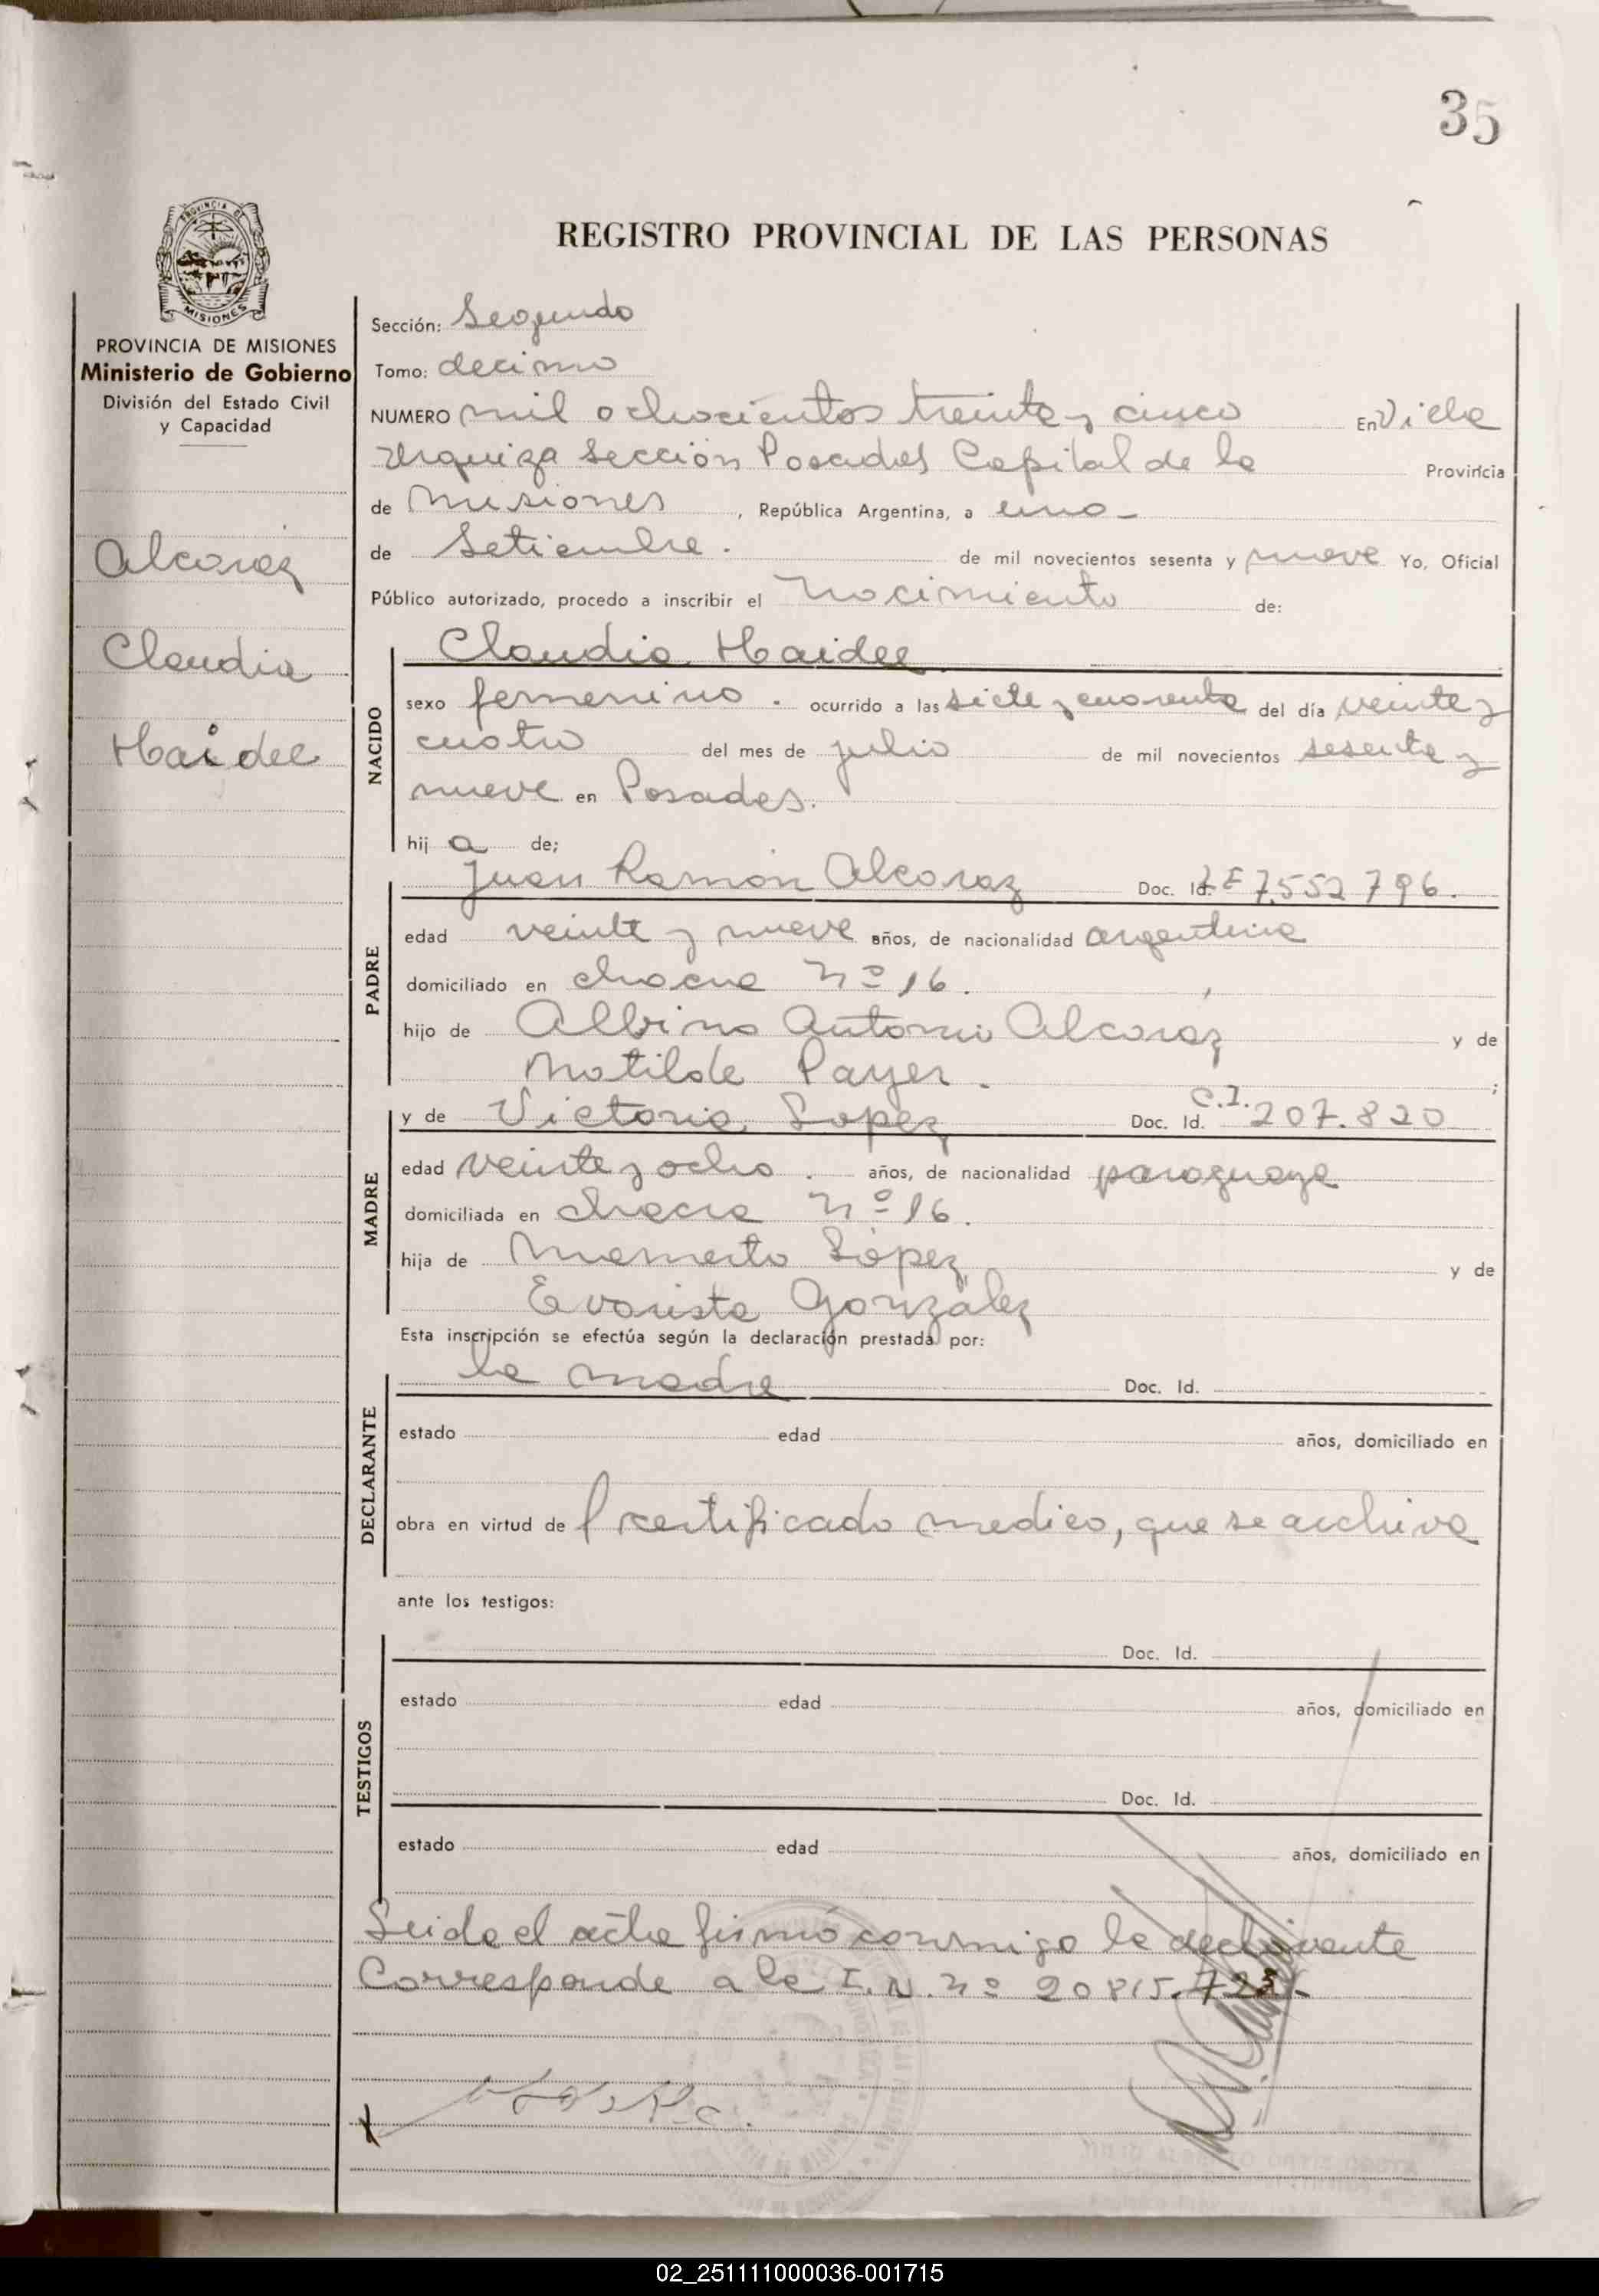 35
PROVINCIA DE
MISIONES
REGISTRO PROVINCIAL DE LAS PERSONAS
PROVINCIA DE MISIONES
Ministerio de Gobierno
División del Estado Civil
y Capacidad
Alcaraz
Claudia
Haidee
Sección: Segundo
Tomo: decimo
NUMERO mil ochocientos treinta y cinco En Villa
Urquiza Sección Posadas Capital de la Provincia
de Misiones, República Argentina, a uno-
de Setiembre. de mil novecientos sesenta y nueve Yo, Oficial
Público autorizado, procedo a inscribir el nacimiento de:
NACIDO
Claudia Haidee
sexo femenino. ocurrido a las siete y cuarenta del día veinte y
cuatro del mes de julio de mil novecientos sesenta y
nueve en Posadas.
hija de;
PADRE
Juan Ramón Alcaraz Doc. Id. LE 7.552796.
edad veinte y nueve años, de nacionalidad argentina
domiciliado en chacra nº 16.
hijo de Albino Antonio Alcaraz y de
Matilde Payer. ;
MADRE
y de Victoria Lopez Doc. Id. C.I. 207.820
edad veinte y ocho. años, de nacionalidad paraguaya
domiciliada en chacra nº 16.
hija de Memerto López y de
Evarista González
Esta inscripción se efectúa según la declaración prestada por:
DECLARANTE
la madre Doc. Id.
estado edad años, domiciliado en
obra en virtud de certificado medico, que se archiva
ante los testigos:
TESTIGOS
Doc. Id.
estado edad años, domiciliado en
Doc. Id.
estado edad años, domiciliado en
Leida el acta firmó conmigo la declarante
Corresponde a la I.N. nº 20815.723
02_251111000036-001715